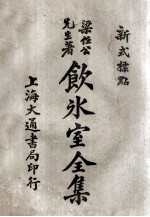 新式標點
梁任公
先生著
飲冰室全集
上海大通書局印行